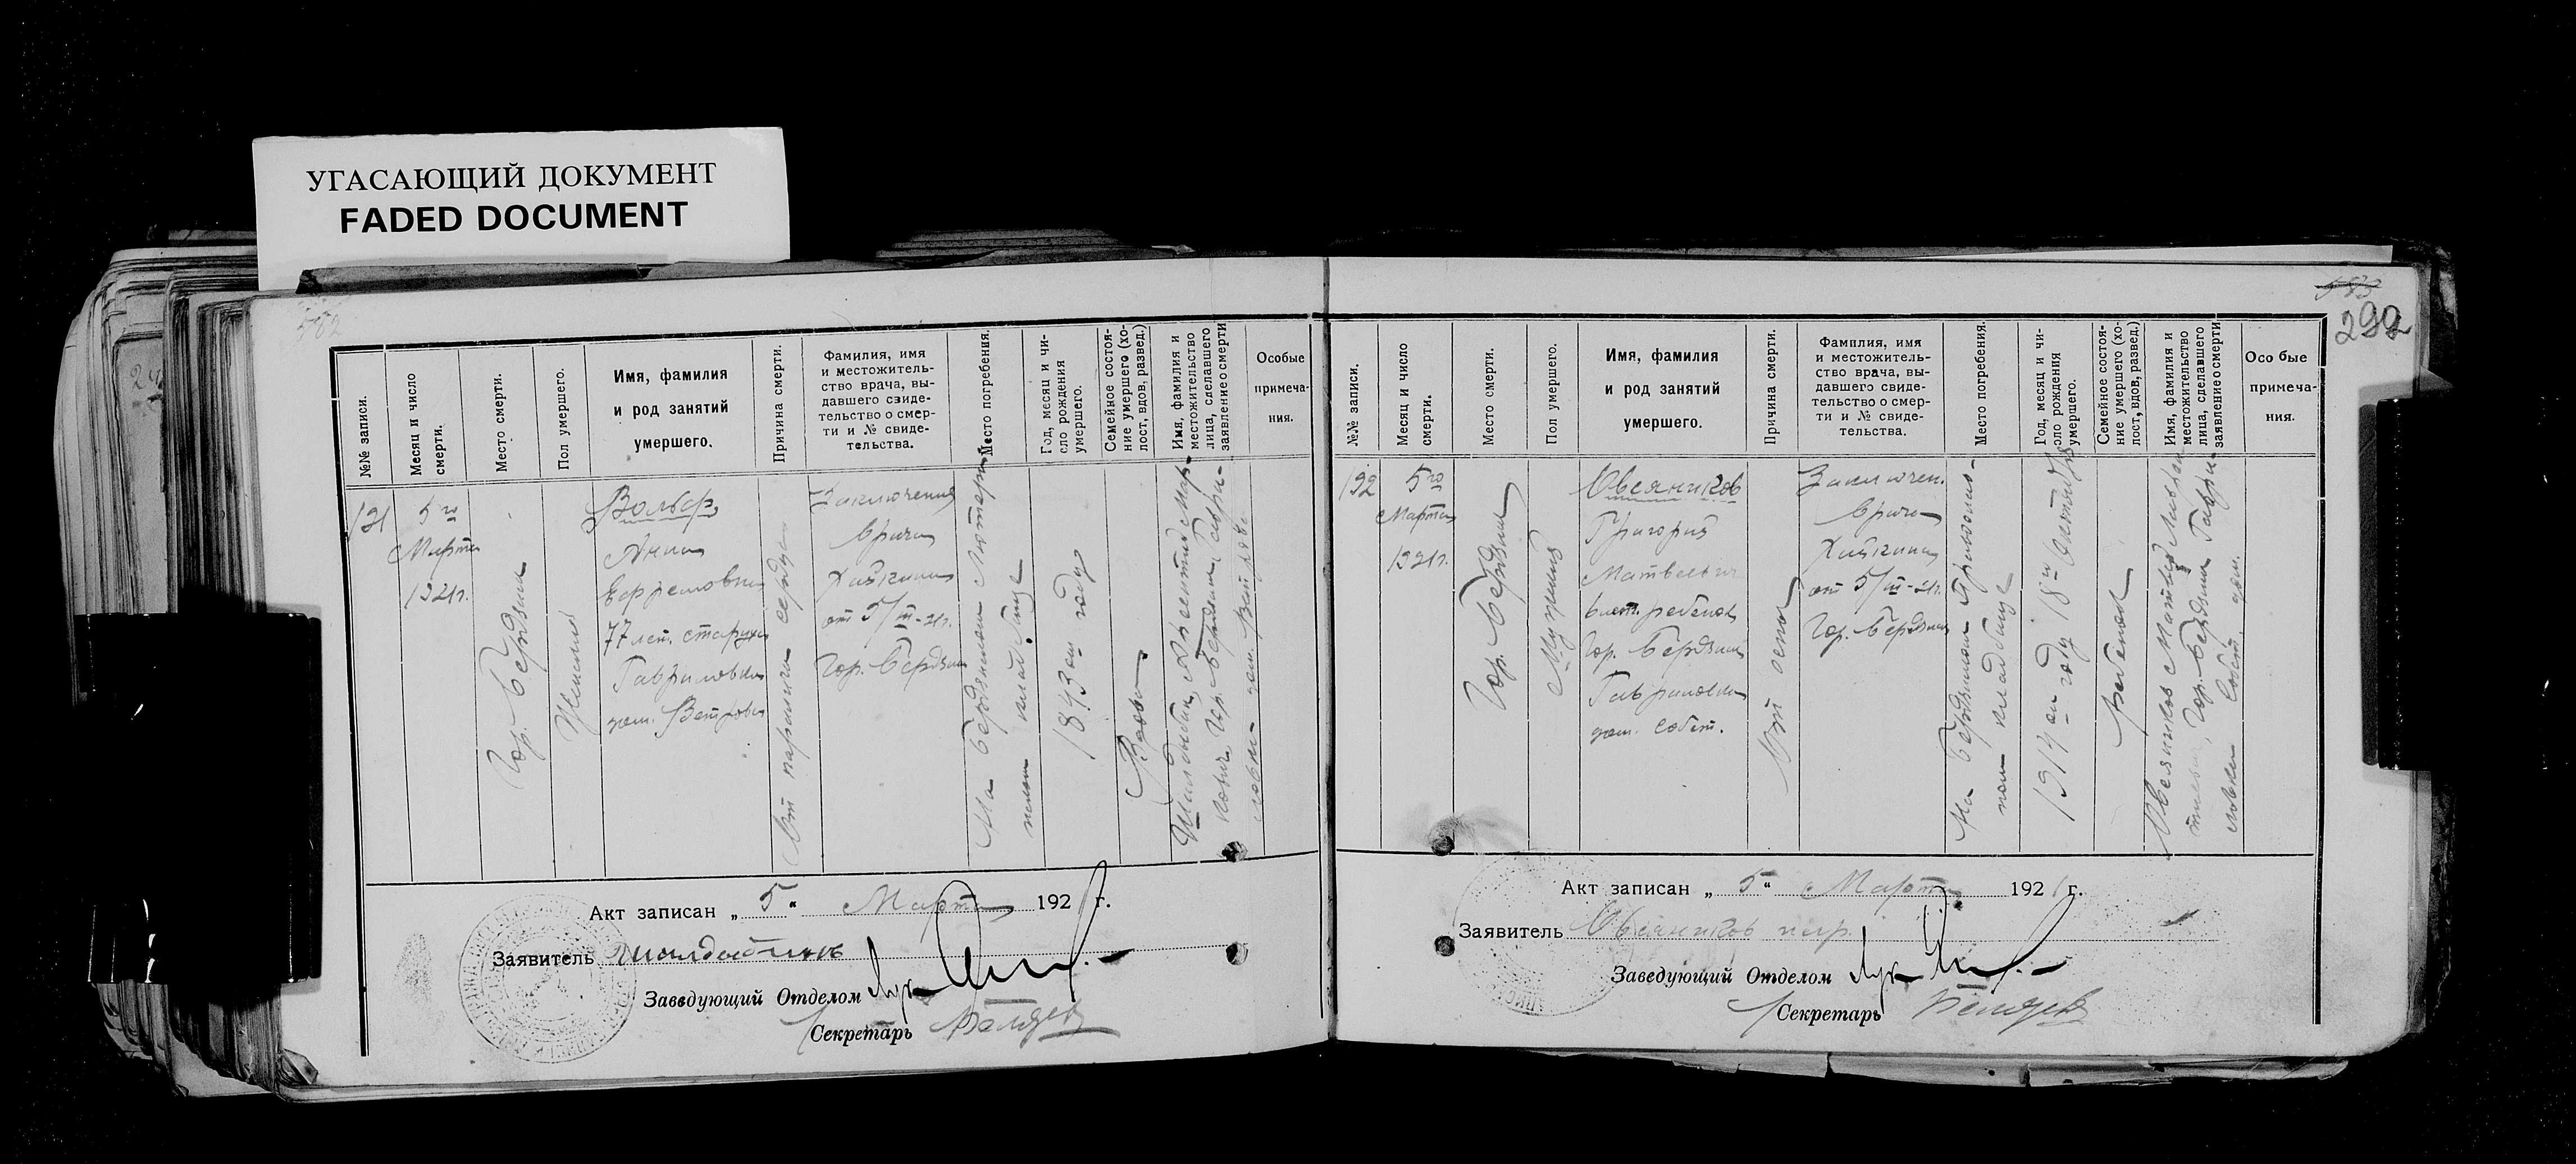 УГАСАЮЩИЙ ДОКУМЕНТ
FADED DOCUMENT
582
№№ записи.
Месяц и число
смерти.
Место смерти.
Пол умершего.
Имя, фамилия
и род занятий
умершего.
Причина смерти.
Фамилия, имя
и местожитель-
ство врача, вы-
давшего свиде-
тельство о смер-
ти и № свиде-
тельства.
Место погребения.
Год, месяц и чи-
сло рождения
умершего.
Семейное состоя-
ние умершего (хо-
лост, вдов, развед.)
Имя, фамилия и
местожительство
лица, сделавшего
заявление о смерти
Особые
примеча-
ния.
131
5го
Марта
1921г.
Гор. Бердянск
Женский
Вольф
Анна
Ефремовна
77 лет. старуха
Гавриловка
дом. Ветрова
От паралича сердца
Заключение
врача
Хайкина
от 5/III-21г.
Гор. Бердянск
На Бердянском Лютеран-
ском кладбище
1843 ом году
Вдова
Гор. Бердянск Гаври-
ловка
Акт записан „ 5 “ Марта 1921 г.
Заявитель
Заведующий Отделом
Секретарь Беляев
583
292
№№ записи.
Месяц и число
смерти.
Место смерти.
Пол умершего.
Имя, фамилия
и род занятий
умершего.
Причина смерти.
Фамилия, имя
и местожитель-
ство врача, вы-
давшего свиде-
тельство о смер-
ти и № свиде-
тельства.
Место погребения.
Год, месяц и чи-
сло рождения
умершего.
Семейное состоя-
ние умершего (хо-
лост, вдов, развед.)
Имя, фамилия и
местожительство
лица, сделавшего
заявление о смерти
Осо бые
примеча-
ния.
132
5го
Марта
1921г.
Гор. Бердянск
Мужской
Овсяников
Григорий
Матвеевич
ребенок
Гор. Бердянск
Гавриловка
дом. собст.
От оспы
Заключен.
врача
Хайкина
от 5/III-21г.
Гор. Бердянск
На Бердянском
ном кладбище
1914 ом году 18го
Ребенок
Овсяников Матвей
Гор. Бердянск Гаври-
ловка собст. дом.
Акт записан „ 5 “ Марта 1921 г.
Заявитель Овсяников
Заведующий Отделом
Секретарь Беляев